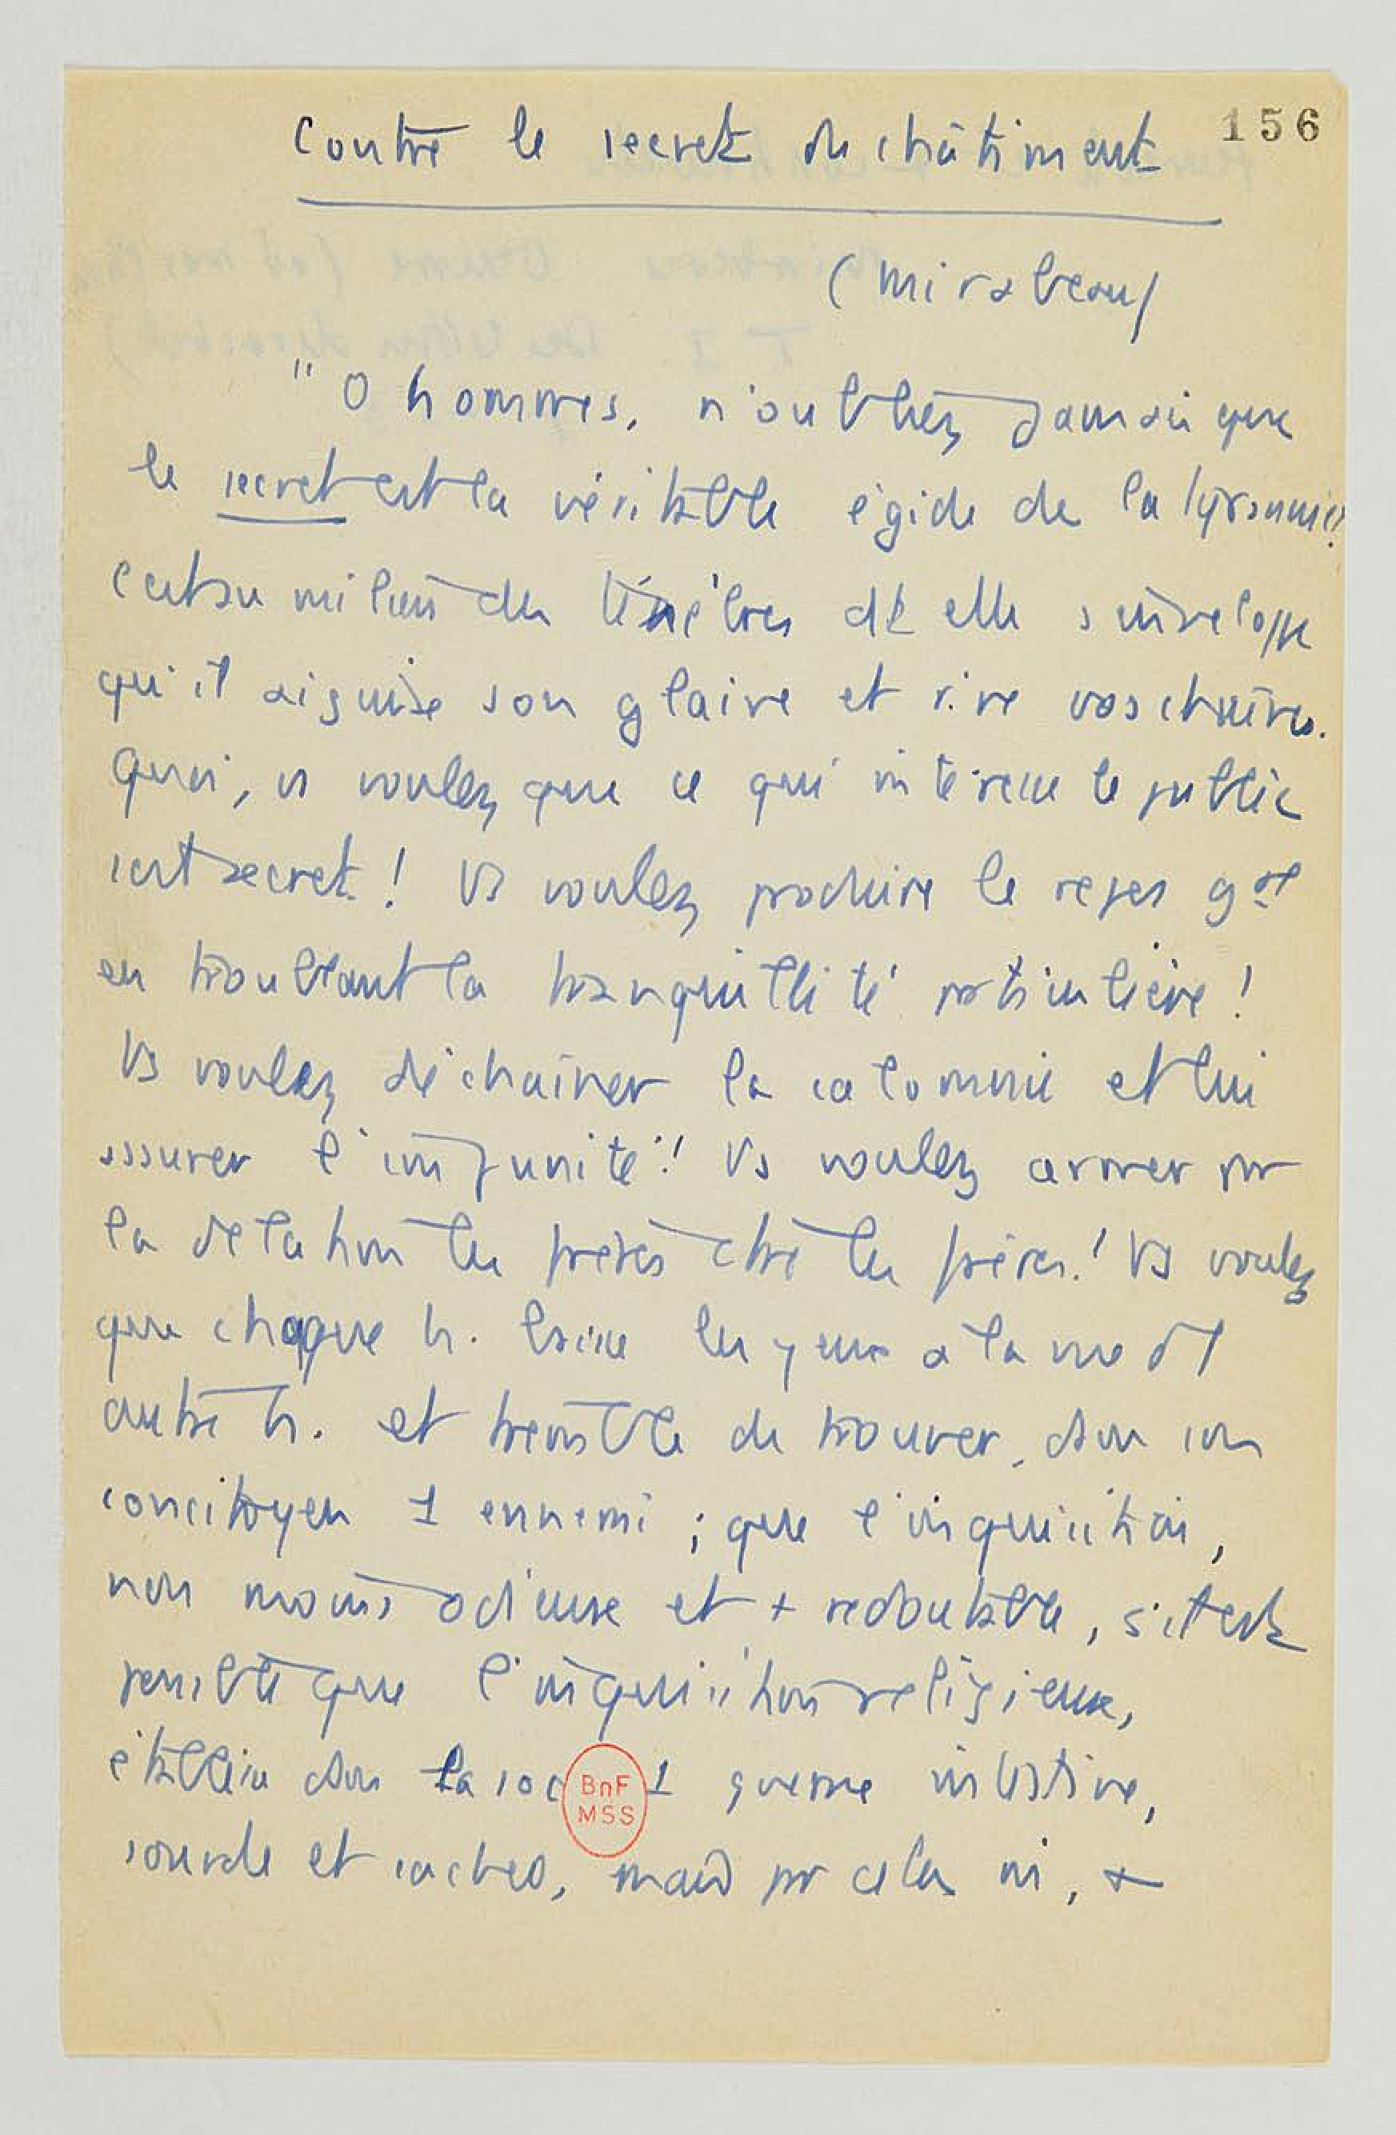 156
Contre le secret du châtiment
(Mirabeau)
"O hommes, n'oubliez jamais que
le secret est la véritable égide de la tyrannie!
C'est au milieu des ténèbres dt elle s'enveloppe
qu'il aiguise son glaive et rive vos chaînes.
Quoi, vs voulez que ce qui intéresse le public
soit secret ! Vs voulez produire le repos gal
en troublant la tranquillité particulière !
Vs voulez déchaîner la calomnie et lui
assurer l'impunité ! Vs voulez armer pr
la délation les frères ctre les frères ! Vs voulez
que chaque h. baisse les yeux à la vue d'1
autre h. et tremble de trouver dans son
concitoyen 1 ennemi ; que l'inquisition,
non moins odieuse et + redoutable, s'il est
possible que l'inquisition religieuse,
établisse dans la soc 1 guerre intestine,
BnF
MSS
sourde et cachée, mais pr cela m, +